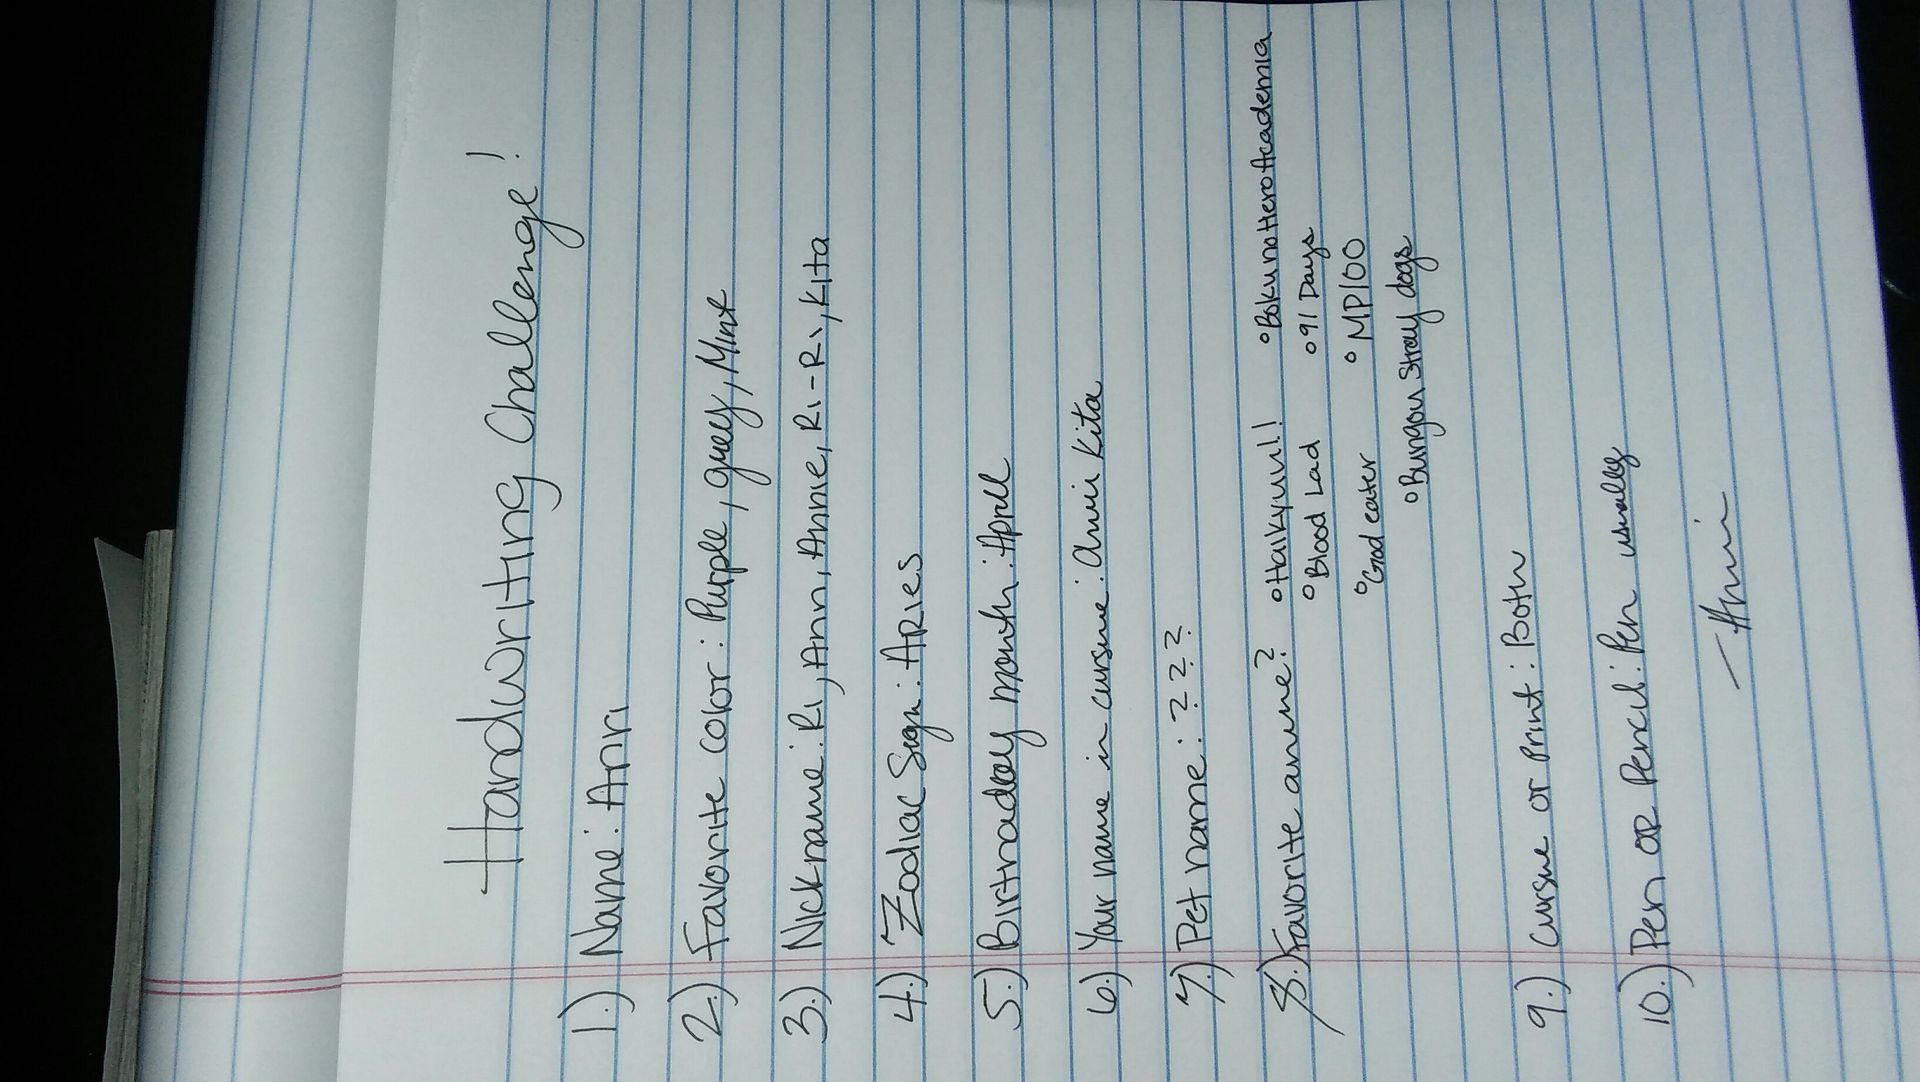 Handwriting Challenge!
1.) Name: Anri
2.) Favorite color: Purple, grey, Mint
3.) Nickname: Ri, Ann, Annie, Ri-Ri, Kita
4.) Zodiac Sign: Aries
5.) Birthday month: April
6.) Your name in cursive: Anri Kita
7.) Pet name: ? ? ? ?
8.) Favorite anime? °Haikyuu!! °Boku no Hero Academia
°Blood Lad °91 Days
°God eater °MP100
°Bungou Stray dogs
9.) Cursive or Print: Both
10.) Pen or Pencil: Pen usually
- Anri